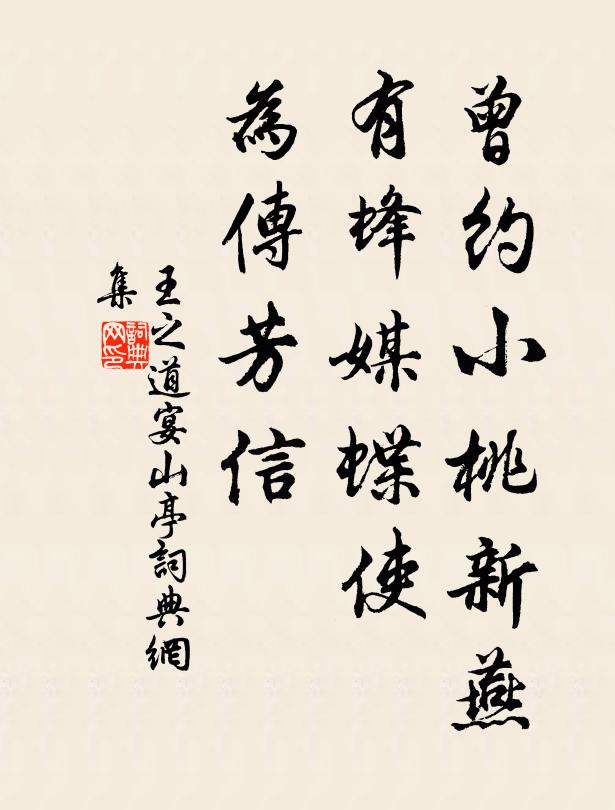 曾約小桃新燕
有蜂媒蝶使
為傳芳信
王之道宴山亭詞典網
集
詞典
網印